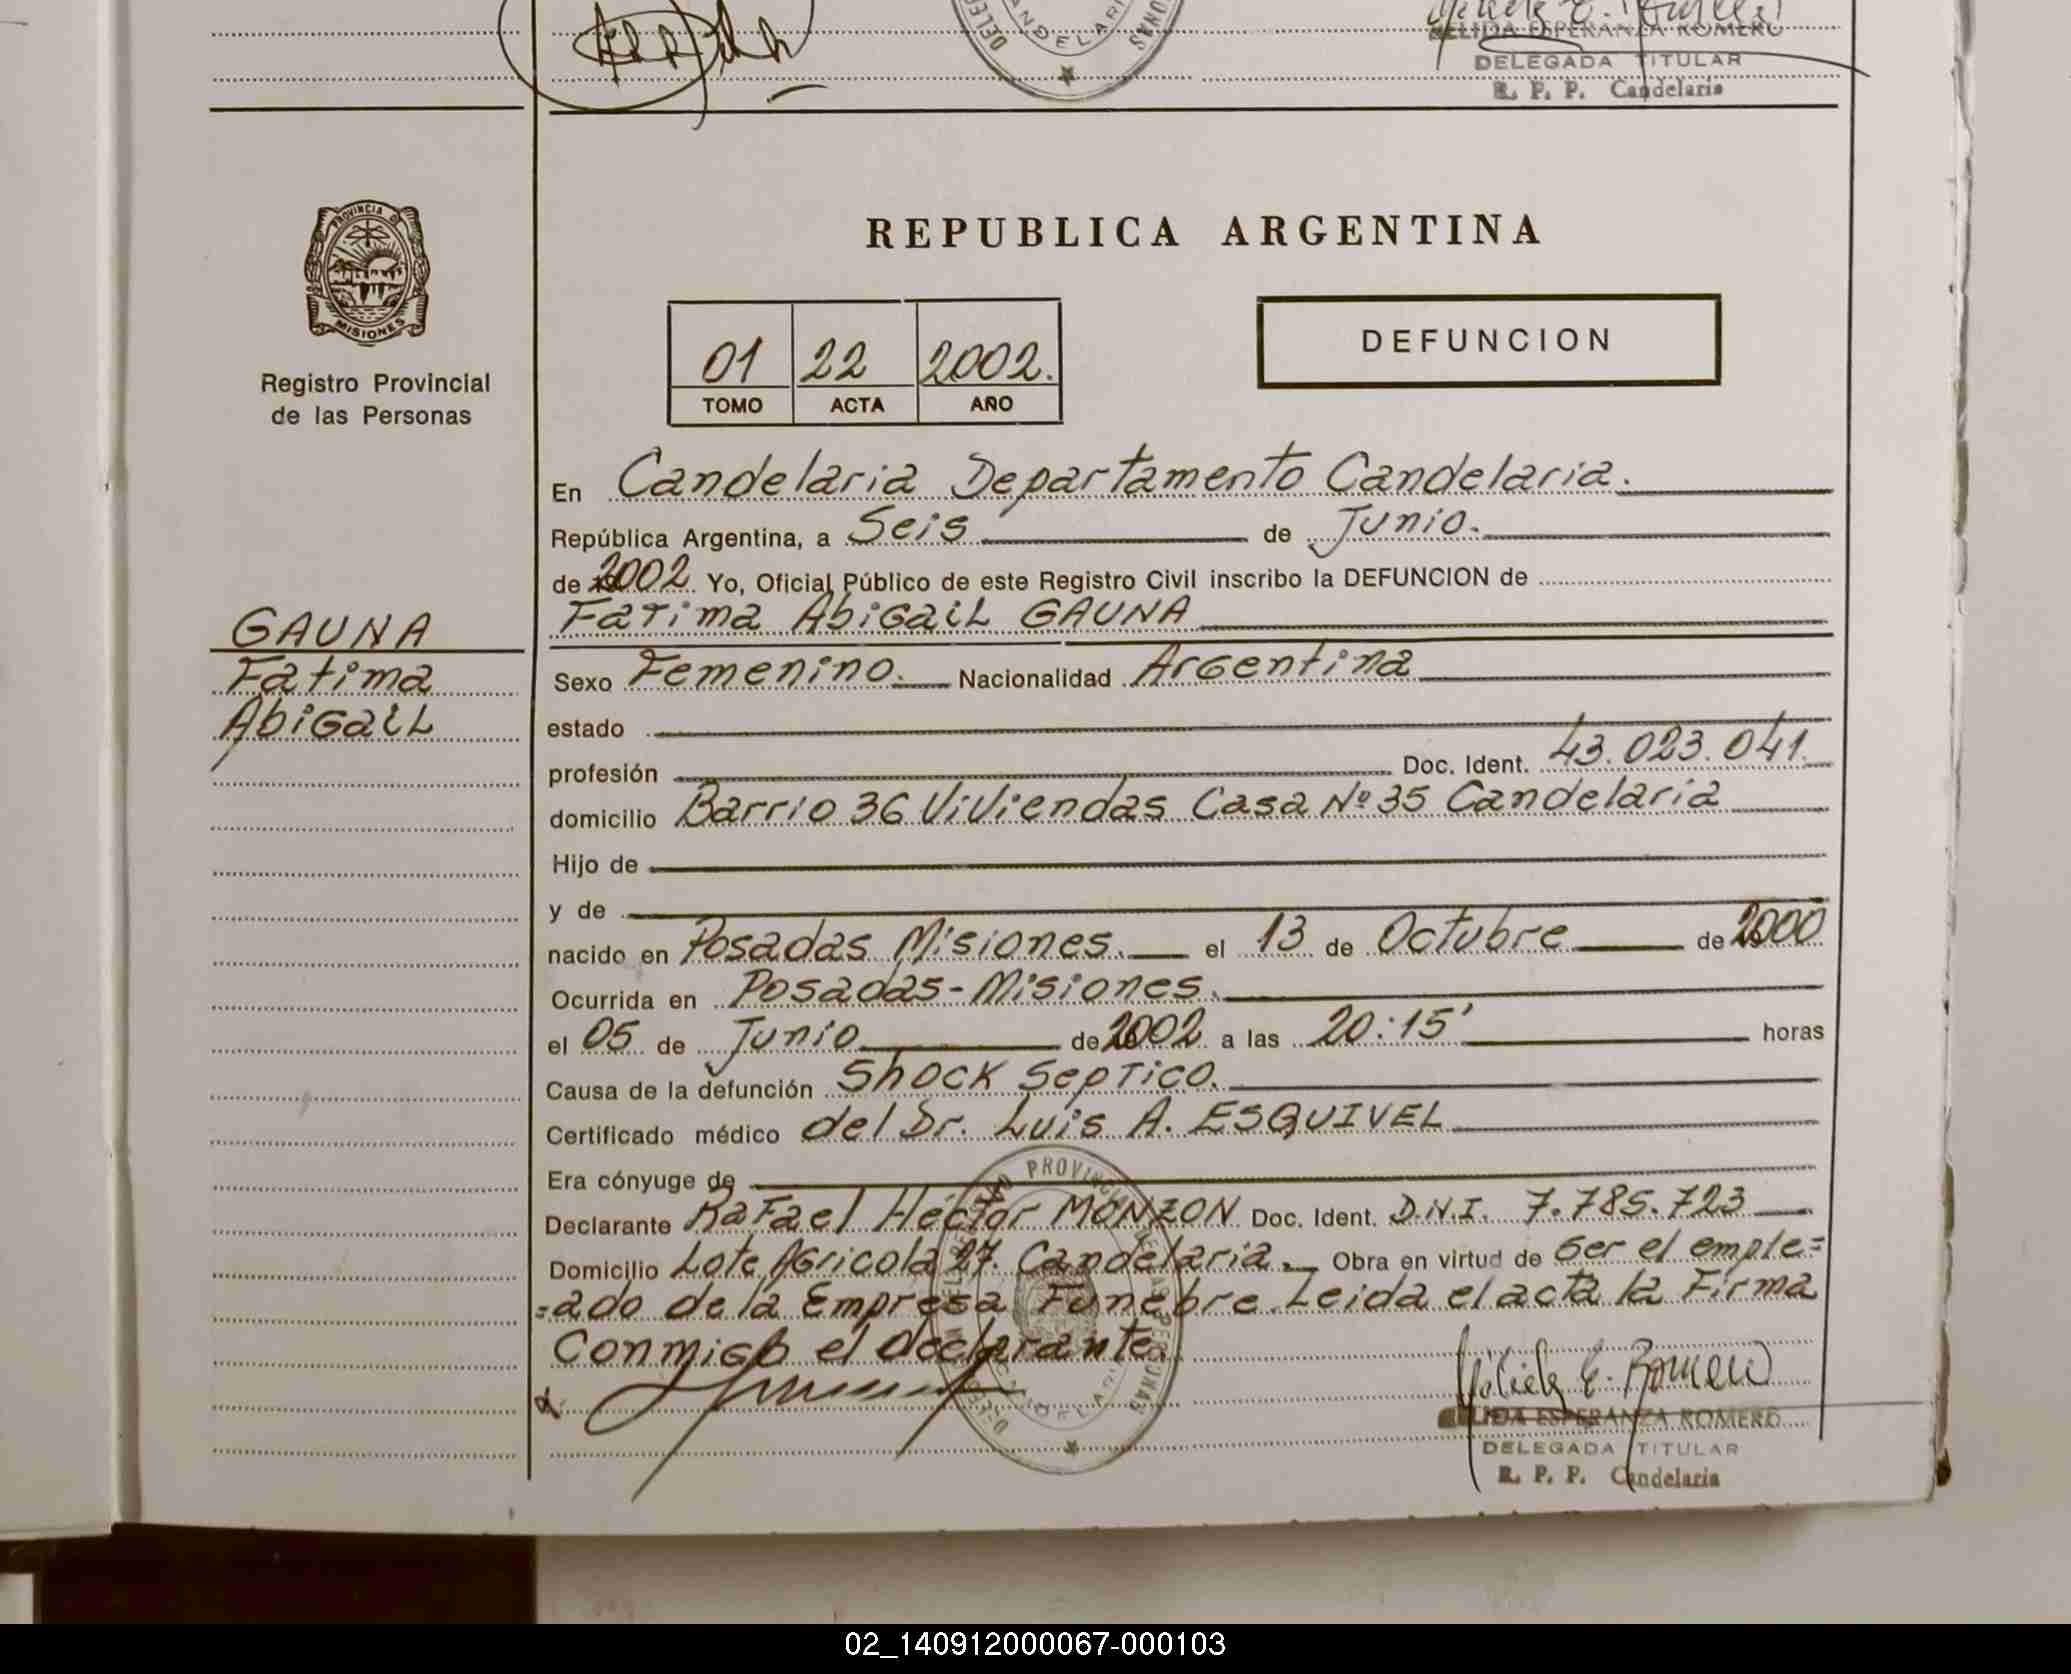 DELEG
CANDELARI
ONAS
ELIDA ESPERANZA ROMERO
DELEGADA TITULAR
R. P. P. Candelaria
PROVINCIA D
MISIONES
Registro Provincial
de las Personas
REPUBLICA ARGENTINA
01 22 2002.
TOMO ACTA AÑO
DEFUNCION
En Candelaria Departamento Candelaria.
República Argentina, a Seis de Junio.
de 2002 Yo, Oficial Público de este Registro Civil inscribo la DEFUNCION de
Fatima Abigail GAUNA
GAUNA
Fatima
Abigail
Sexo Femenino. Nacionalidad Argentina
estado
profesión Doc. Ident. 43.023.041.
domicilio Barrio 36 Viviendas Casa Nº 35 Candelaria
Hijo de
y de
nacido en Posadas Misiones. el 13 de Octubre de 2000
Ocurrida en Posadas-Misiones.
el 05 de Junio de 2002 a las 20:15' horas
Causa de la defunción Shock Septico.
Certificado médico del Dr. Luis A. ESQUIVEL
Era cónyuge de
Declarante Rafael Héctor MONZON Doc. Ident. D.N.I. 7.785.723
Domicilio Lote Agricola 27. Candelaria. Obra en virtud de Ser el emple=
=ado de la Empresa Funebre. Leida el acta la Firma
Conmigo el declarante.
E. Romero
LIDA ESPERANZA ROMERO
DELEGADA TITULAR
R. P. P. Candelaria
02_140912000067-000103